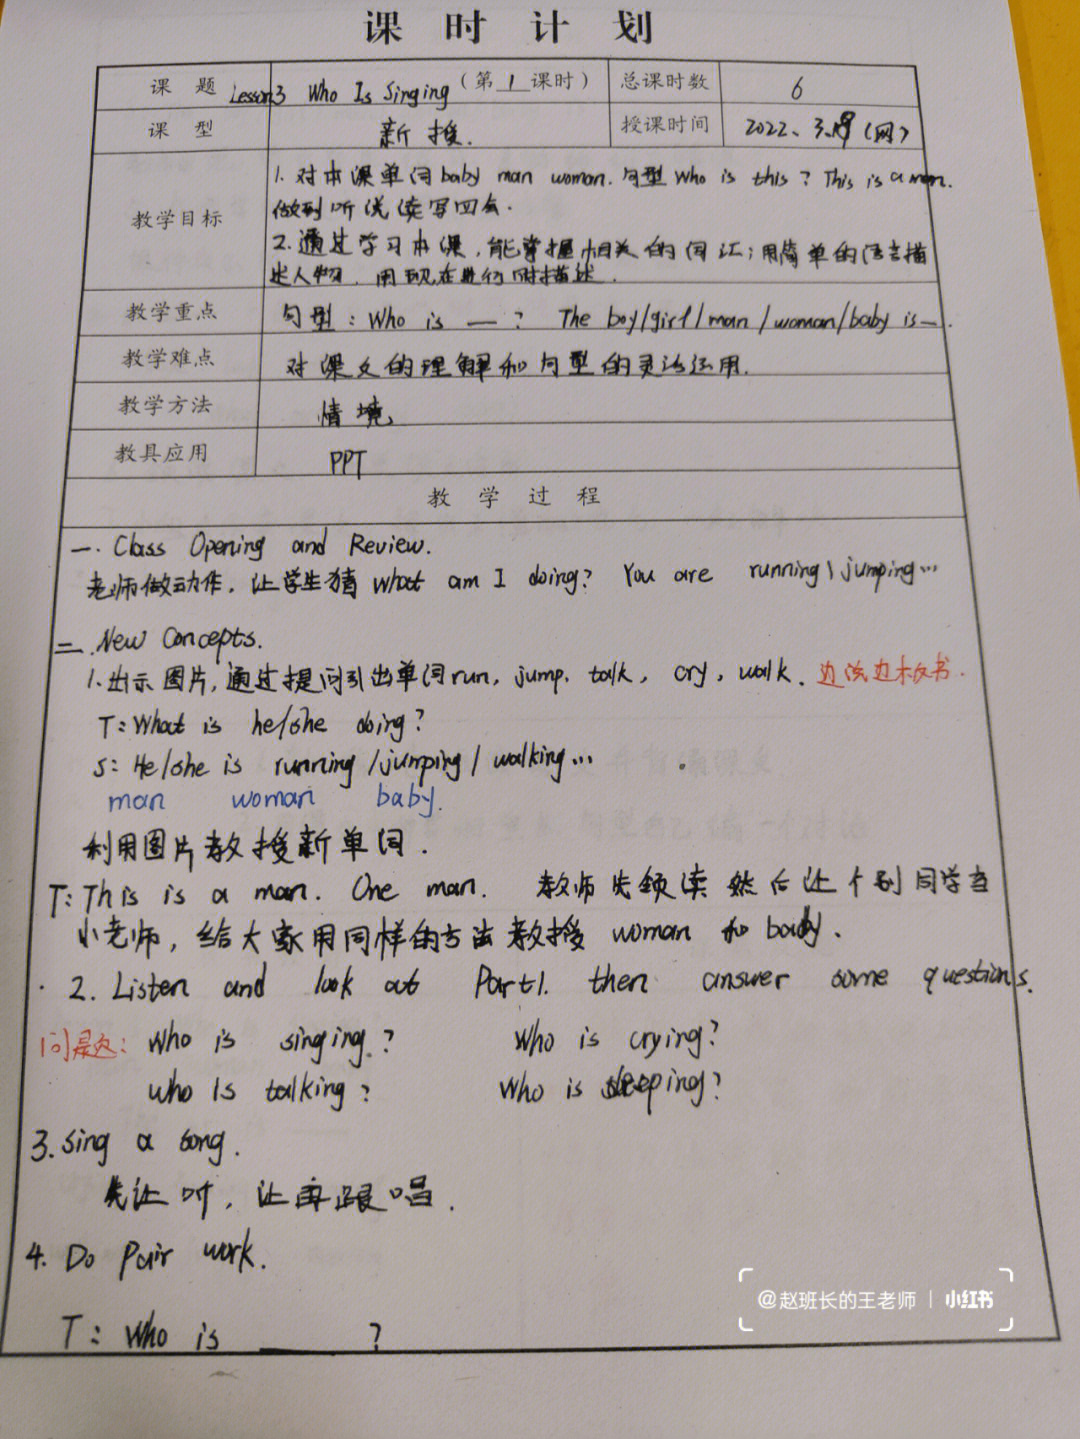 课 时 计 划
课 题 Lesson3 Who Is Singing (第 1 课时) 总课时数 6
课 型 新 授. 授课时间 2022、3、 (网)
教学目标 1. 对本课单词 baby man woman. 句型 Who is this? This is a man.
做到听说读写四会.
2. 通过学习本课, 能掌握相关的词汇; 用简单的语言描
述人物. 用现在进行时描述.
教学重点 句型: Who is — ? The boy/girl/man/woman/baby is —.
教学难点 对课文的理解和句型的灵活运用.
教学方法 情境
教具应用 PPT
教 学 过 程
一. Class Opening and Review.
老师做动作, 让学生猜 What am I doing? You are running \ jumping...
二. New Concepts.
1. 出示图片, 通过提问引出单词 run, jump, talk, cry, walk. 边说边板书.
T: What is he/she doing?
S: He/she is running /jumping/ walking...
man woman baby.
利用图片教授新单词.
T: This is a man. One man. 教师先领读 然后让个别同学当
小老师, 给大家用同样的方法教授 woman 和 baby.
2. Listen and look at Part1. then answer some questions.
问题: Who is singing? Who is crying?
who is talking? Who is sleeping?
3. Sing a song.
先让听, 让再跟唱.
4. Do Pair work.
T: Who is ______ ?
@赵班长的王老师 | 小红书